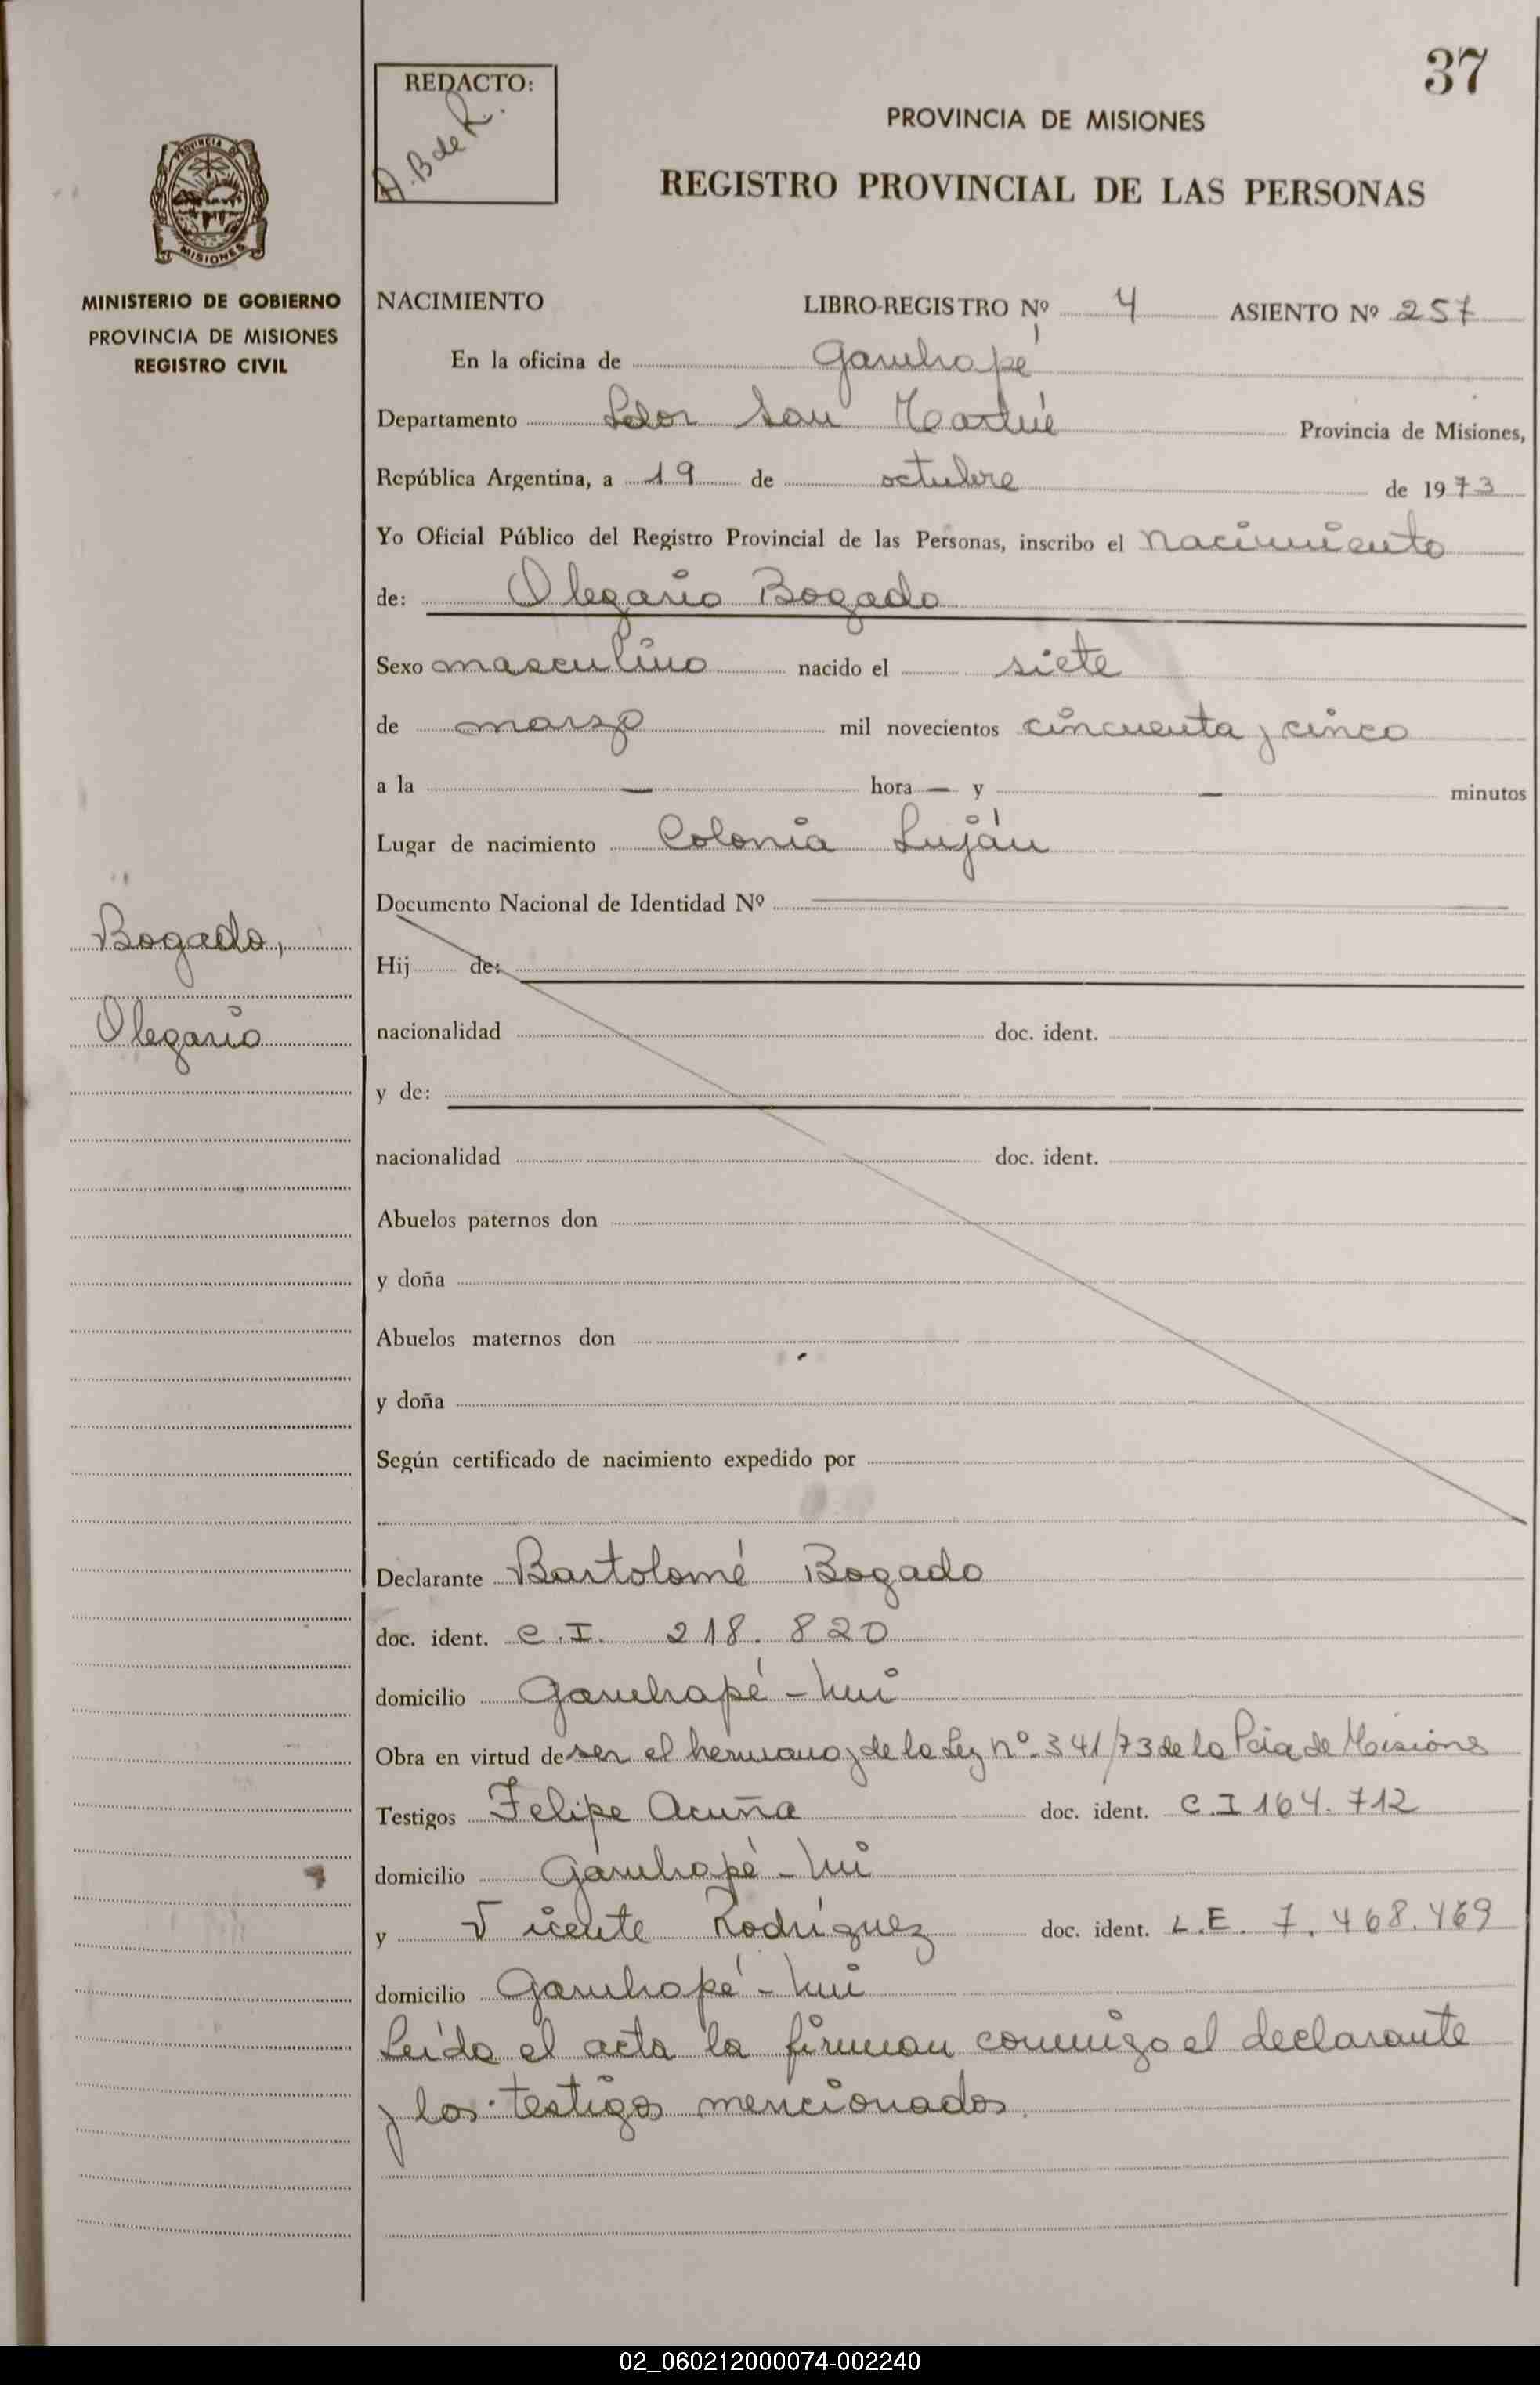 37
REDACTO:
A. B de R.
PROVINCIA DE MISIONES
REGISTRO PROVINCIAL DE LAS PERSONAS
PROVINCIA DE
MISIONES
MINISTERIO DE GOBIERNO
PROVINCIA DE MISIONES
REGISTRO CIVIL
NACIMIENTO LIBRO-REGISTRO Nº 4 ASIENTO Nº 257
En la oficina de Garuhapé
Departamento Ldor San Martín Provincia de Misiones,
República Argentina, a 19 de octubre de 1973
Yo Oficial Público del Registro Provincial de las Personas, inscribo el nacimiento
de: Olegario Bogado
Sexo masculino nacido el siete
de marzo mil novecientos cincuenta y cinco
a la — hora — y — minutos
Lugar de nacimiento Colonia Luján
Documento Nacional de Identidad Nº
Bogado,
Olegario
Hij de:
nacionalidad doc. ident.
y de:
nacionalidad doc. ident.
Abuelos paternos don
y doña
Abuelos maternos don
y doña
Según certificado de nacimiento expedido por
Declarante Bartolomé Bogado
doc. ident. C.I. 218.820
domicilio Garuhapé-Mi
Obra en virtud de ser el hermano y de la Ley nº 341/73 de la Pcia de Misiones
Testigos Felipe Acuña doc. ident. C.I 164.712
domicilio Garuhapé-Mi
y Vicente Rodríguez doc. ident. L.E. 7.468.469
domicilio Garuhapé-Mi
Leída el acta la firman conmigo el declarante
y los testigos mencionados.
02_060212000074-002240